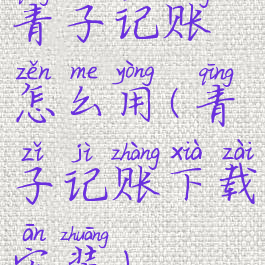 青子记账
zěn me yòng qīng
怎么用(青
zǐ jì zhàng xià zài
子记账下载
ān zhuāng
安装)